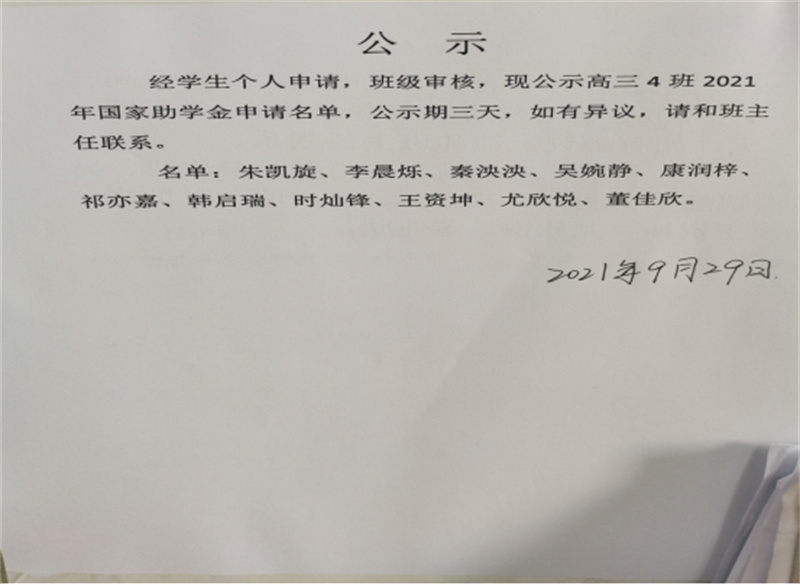 公 示
经学生个人申请，班级审核，现公示高三 4 班 2021
年国家助学金申请名单，公示期三天，如有异议，请和班主
任联系。
名单：朱凯旋、李晨烁、秦泱泱、吴婉静、康润梓、
祁亦嘉、韩启瑞、时灿锋、王资坤、尤欣悦、董佳欣。
2021年9月29日.